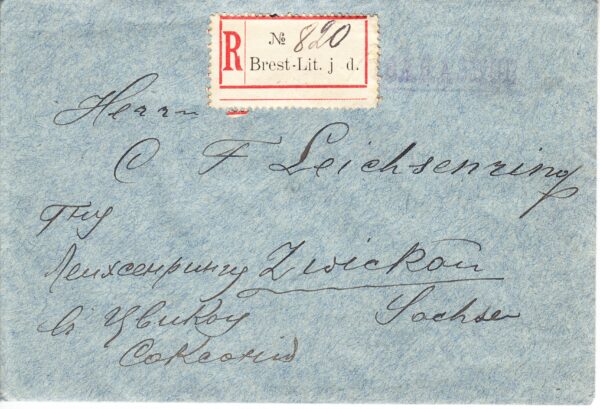 R № 820
Brest-Lit. j d.
Herrn
C F Leichsenring
Гну
Лейхсенрингу Zwickau
въ Цвикау Sachsen
Саксонія